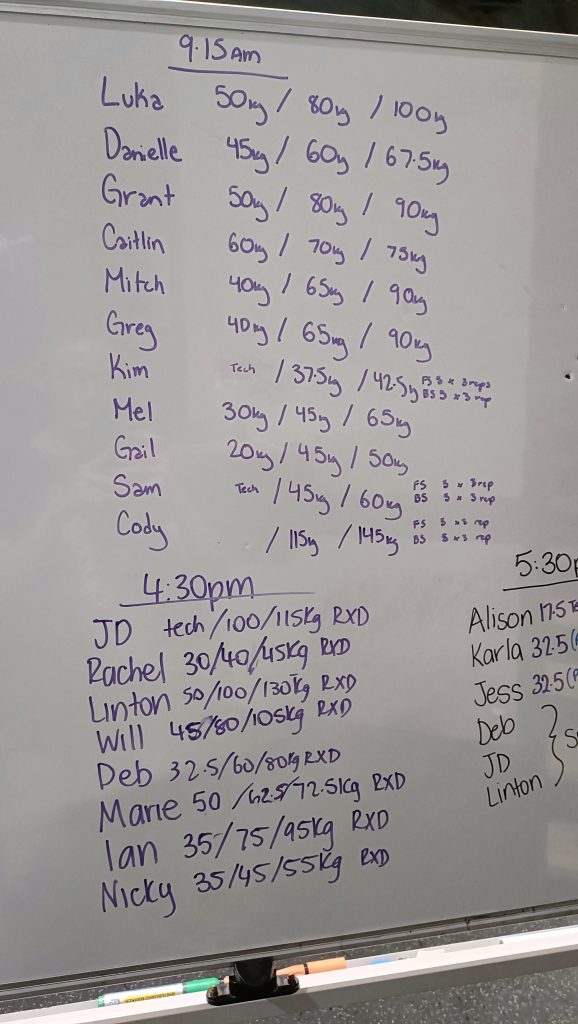 9.15am
Luka 50kg / 80kg / 100kg
Danielle 45kg / 60kg / 67.5kg
Grant 50kg / 80kg / 90kg
Caitlin 60kg / 70kg / 75kg
Mitch 40kg / 65kg / 90kg
Greg 40kg / 65kg / 90kg
Kim Tech / 37.5kg / 42.5kg FS 5 x 3 reps
BS 5 x 3 rep
Mel 30kg / 45kg / 65kg
Gail 20kg / 45kg / 50kg
Sam Tech / 45kg / 60kg FS 5 x 3 rep
BS 5 x 3 rep
Cody / 115kg / 145kg FS 5 x 3 rep
BS 5 x 3 rep
4:30pm
JD tech/100/115Kg RXD
Rachel 30/40/45Kg RXD
Linton 50/100/130Kg RXD
Will 45/80/105Kg RXD
Deb 32.5/60/80Kg RXD
Marie 50/62.5/72.5Kg RXD
Ian 35/75/95Kg RXD
Nicky 35/45/55Kg RXD
5:30p
Alison 17.5
Karla 32.5
Jess 32.5
Deb
JD
Linton